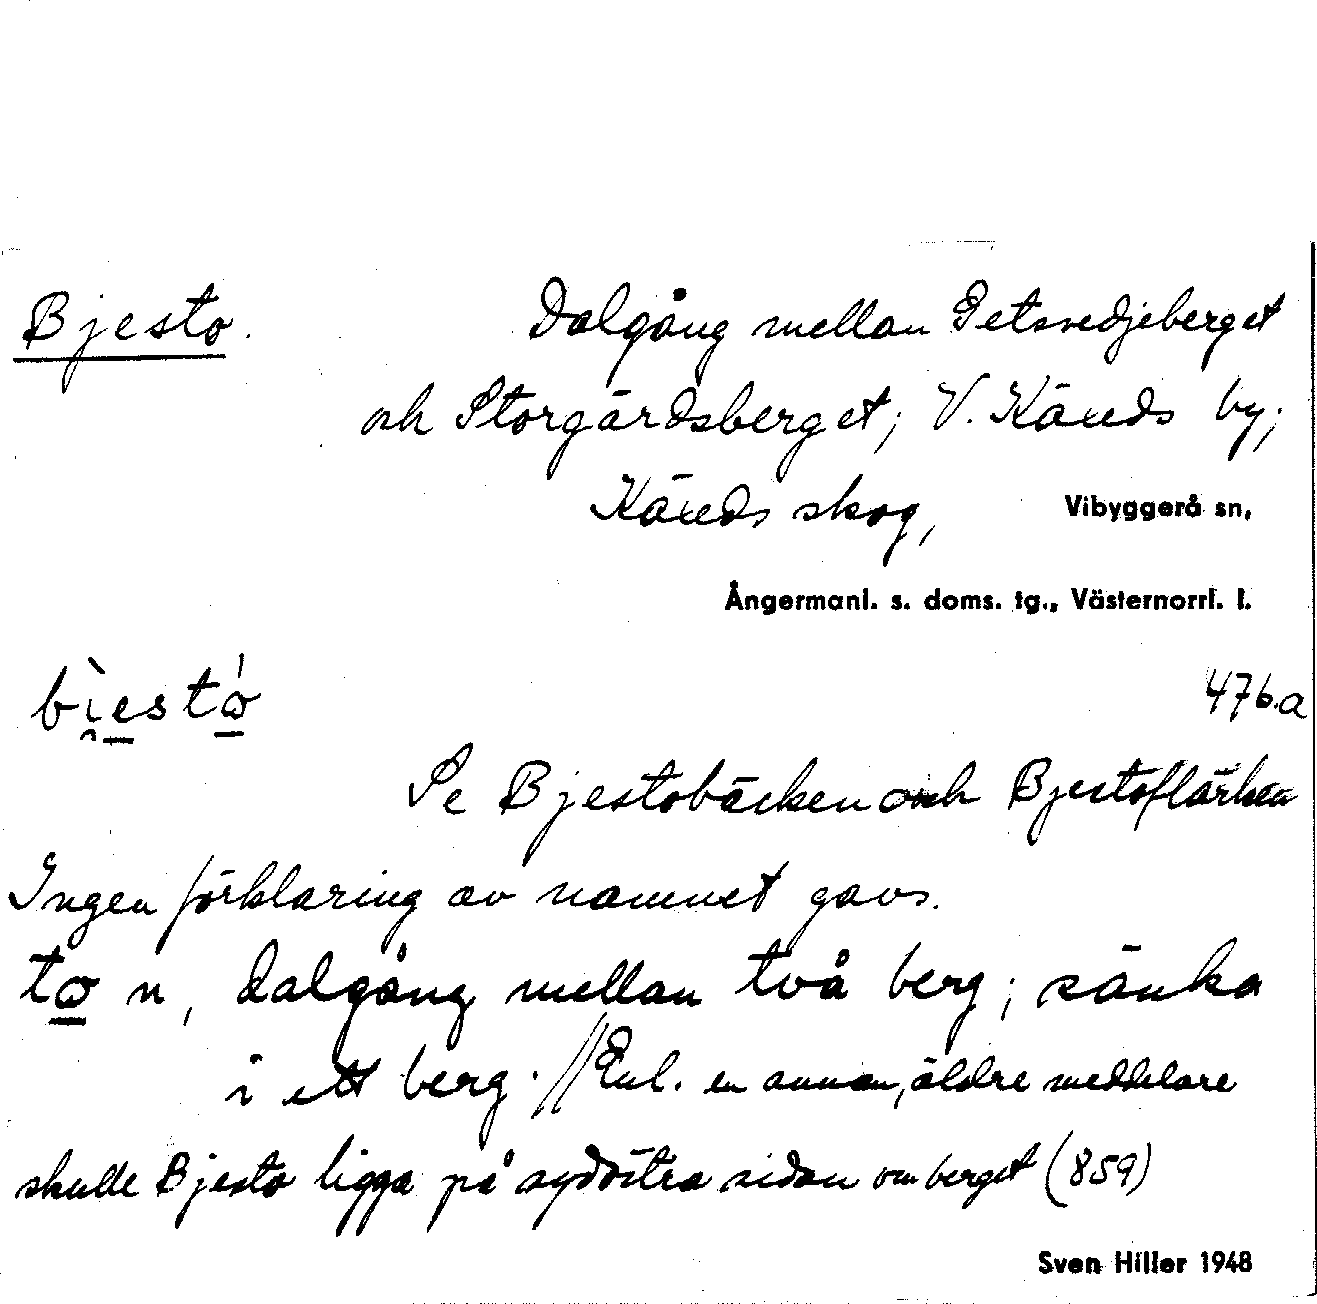 Bjesto. Dalgång mellan Getsvedjeberget
och Storgårdsberget; V. Käxeds by;
Käxeds skog, Vibyggerå sn,
Ångermanl. s. doms. tg., Västernorrl. l.
476.a
Se Bjestobäcken och Bjestoflärken
Ingen förklaring av namnet gavs.
to n, dalgång mellan två berg; sänka
i ett berg. // Enl. en annan, äldre meddelare
skulle Bjesto ligga på sydöstra sidan om berget (859)
Sven Hiller 1948